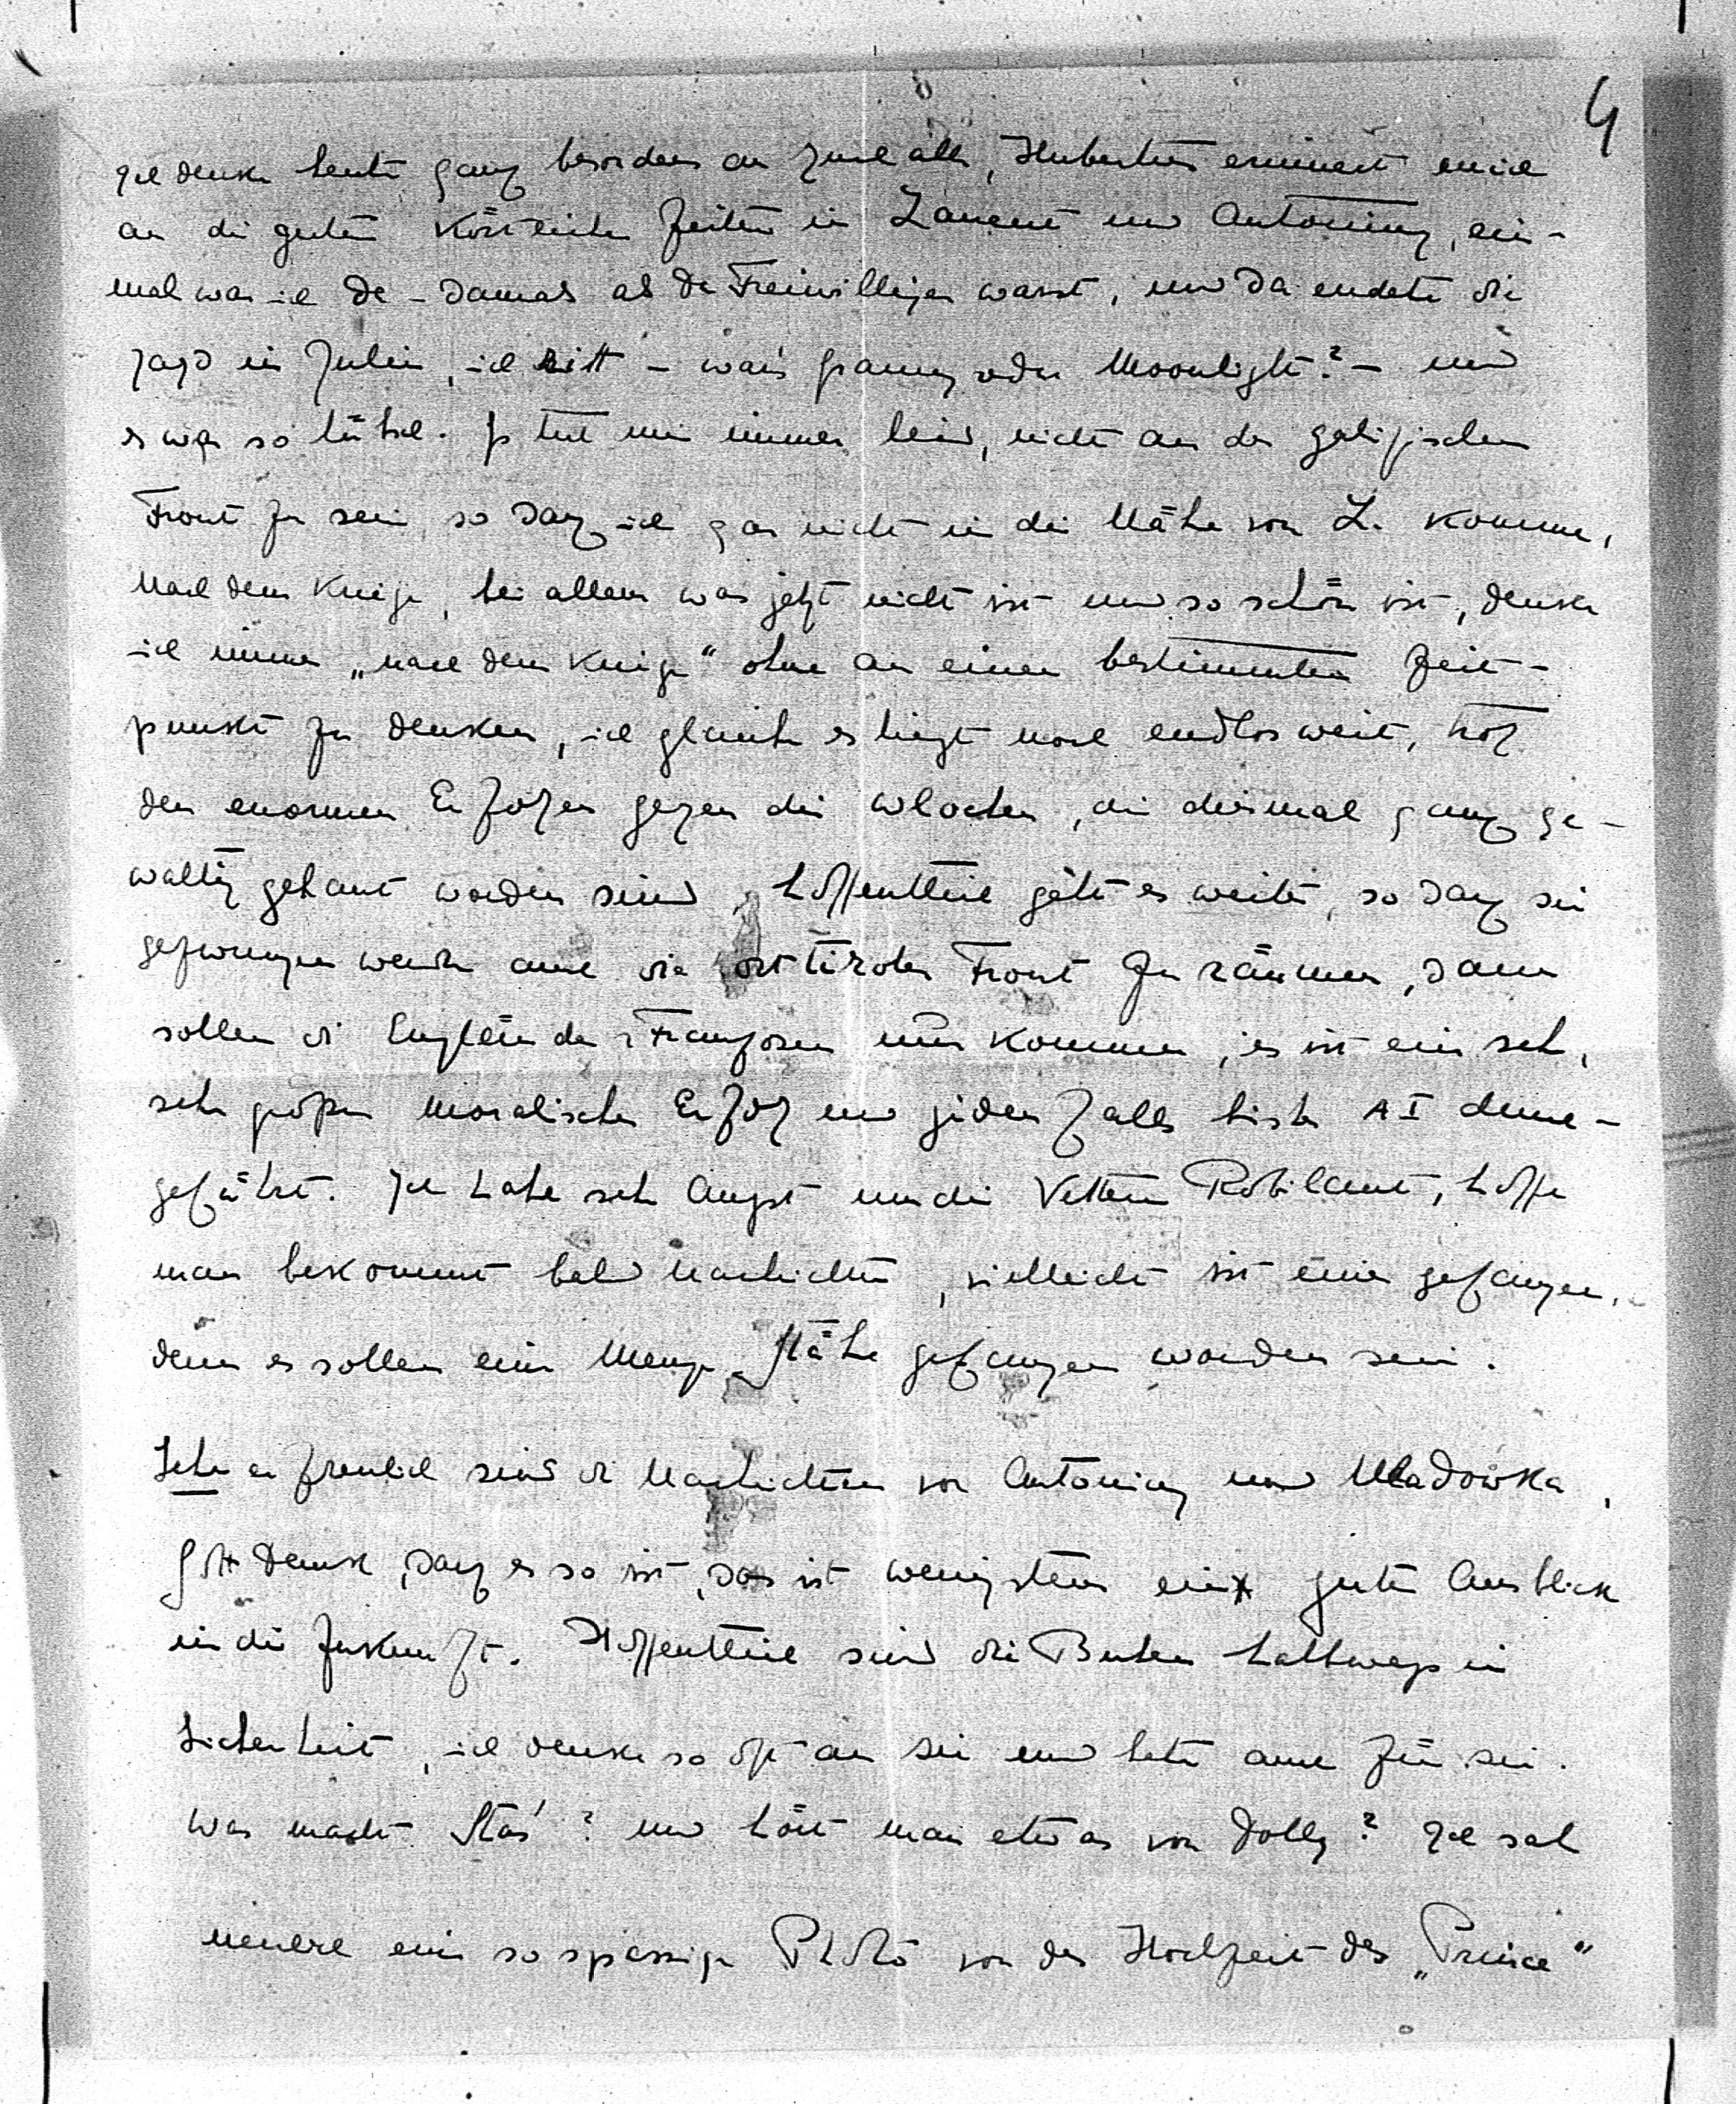 4
Ich denke heute ganz besonders an Euch alle, Hubertus erinnert mich
an die guten köstlichen Zeiten in Lancut und Antoniny, ein-
mal war ich da – damals als Du Freiwilliger warst, und da endete die
Jagd in Julin, ich ritt – war's Granny oder Moonlight? – und
es war so hübsch. Es tut mir immer leid, nicht an der galizischen
Front zu sein, so daß ich gar nicht in die Nähe von L. komme,
Nach dem Kriege, bei allem was jetzt nicht ist und so schön ist, denke
ich immer „nach dem Kriege" ohne an einen bestimmten Zeit-
punkt zu denken, ich glaube es liegt noch endlos weit, trotz
den enormen Erfolgen gegen die Wlochen, die diesmal ganz ge-
waltig gehaut worden sind, hoffentlich geht es weiter, so daß sie
gezwungen werden auch die ost tiroler Front zu räumen, dann
sollen die Engländer & Franzosen nur kommen, es ist ein sehr,
sehr großer moralischer Erfolg und jeden falls bisher A I durch-
geführt. Ich habe sehr Angst um die Vettern Robilant, hoffe
man bekommt bald Nachrichten, vielleicht ist einer gefangen,
denn es sollen eine Menge Stäbe gefangen worden sein.
Sehr erfreulich sind die Nachrichten von Antoniny und Mladowka,
Gott Dank, daß es so ist, das ist wenigstens ein guter Ausblick
in die Zukunft. Hoffentlich sind die Buben halbwegs in
Sicherheit, ich denke so oft an sie und bete auch für sie.
Was macht Staś? und hört man etwas von Dolly? Ich sah
neulich eine so spassige Photo von der Hochzeit des „Prince"